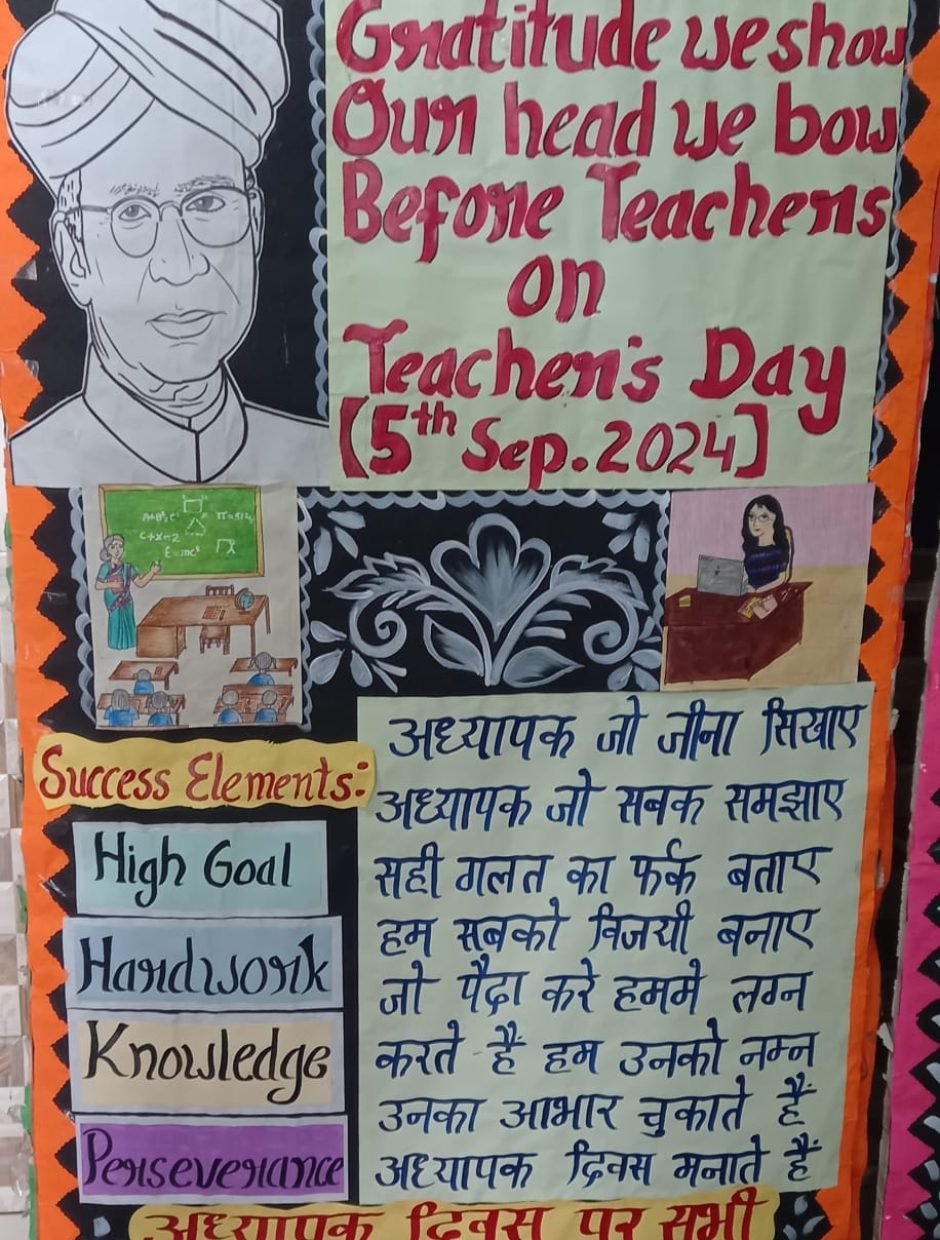 Gratitude we show
Our head we bow
Before Teachers
on
Teacher's Day
(5th Sep. 2024)
C+x=2
E=mc²
Success Elements:
High Goal
Hardwork
Knowledge
Perseverance
अध्यापक जो जीना सिखाए
अध्यापक जो सबक समझाए
सही गलत का फर्क बताए
हम सबको विजयी बनाए
जो पैदा करे हममे लग्न
करते है हम उनको नम्न
उनका आभार चुकाते हैं
अध्यापक दिवस मनाते हैं
अध्यापक दिवस पर सभी